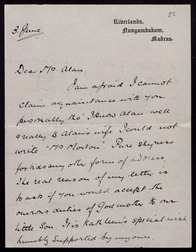 Riverlands,
Nungumbakam,
Madras.
3. June
Dear Mrs Alan
I am afraid I cannot
claim acquaintance with you
personally, tho' I know Alan well
& really to Alan's wife I could not
write "Mrs Morton". Pure shyness
forbids any other form of address.
The real reason of my letter is
to ask if you would accept the
onerous duties of Godmother to our
little Son. It is Kathleen's special wish
humbly supported by my own.